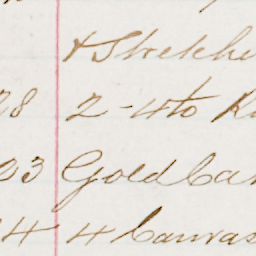 & Stretche
28 2 - 4to R
03 Gold Ca
4 4 Canvas